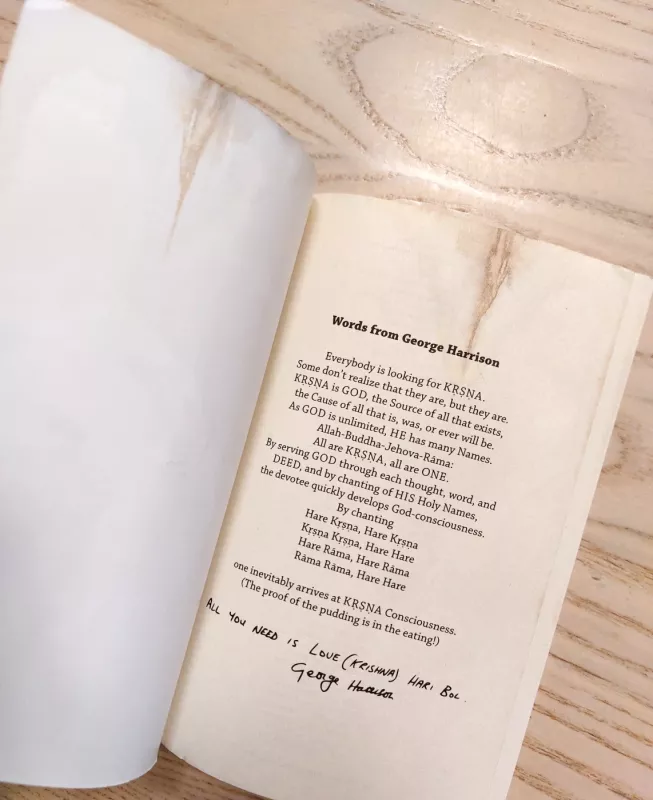 Words from George Harrison
Everybody is looking for KṚṢṆA.
Some don't realize that they are, but they are.
KṚṢṆA is GOD, the Source of all that exists,
the Cause of all that is, was, or ever will be.
As GOD is unlimited, HE has many Names.
Allah-Buddha-Jehova-Rāma:
All are KṚṢṆA, all are ONE.
By serving GOD through each thought, word, and
DEED, and by chanting of HIS Holy Names,
the devotee quickly develops God-consciousness.
By chanting
Hare Kṛṣṇa, Hare Kṛṣṇa
Kṛṣṇa Kṛṣṇa, Hare Hare
Hare Rāma, Hare Rāma
Rāma Rāma, Hare Hare
one inevitably arrives at KṚṢṆA Consciousness.
(The proof of the pudding is in the eating!)
ALL YOU NEED IS LOVE (KRISHNA) HARI BOL.
George Harrison